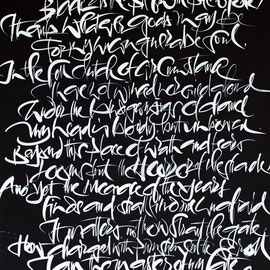 Black as the pit from pole to pole
I Thank whatever gods may be
For my unconquerable soul.
In the fell clutch of circumstance
I have not winced nor cried aloud
Under the bludgeonings of chance
My head is bloody but unbowed
Beyond this place of wrath and tears
Looms but the Horror of the shade
And yet the menace of the years
Finds and shall find me unafraid
It matters not how strait the gate
How charged with punishments the scroll
I am the master of my fate